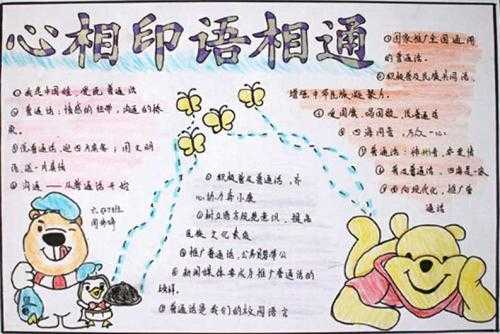 心相印语相通
①我是中国娃,爱说普通话
②普通话:情感的纽带,沟通的桥
梁。
③说普通话,迎四方宾客;用文明
语,送一片真情
④沟通——从普通话开始
六(1)班
①积极普及普通话,齐
心协力奔小康
②树立语言规范意识,提高
民族文化素质
③推广普通话,公务员需带
④新闻媒体要成为推广普通话的
榜样。
⑤普通话是我们的校园语言
①国家推广全国通用
的普通话。
②积极普及民族共同语,
增强中华民族凝聚力。
③爱国旗,唱国歌,说普通话
④四海同音,万众一心
⑤普通话:神州音,华夏情
⑥普及普通话,四海是一家
⑦面向现代化,推广普
通话